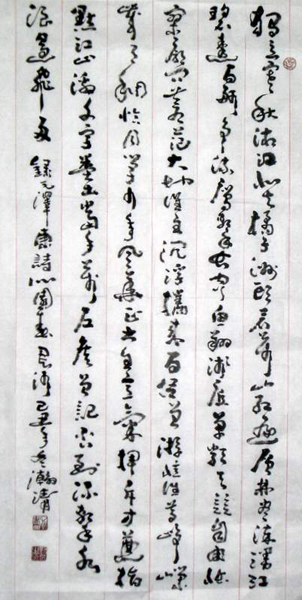 独立寒秋湘江北去橘子洲头看万山红遍层林尽染漫江
碧透百舸争流鹰击长空鱼翔浅底万类霜天竞自由怅
寥廓问苍茫大地谁主沉浮携来百侣曾游忆往昔峥嵘
岁月稠恰同学少年风华正茂书生意气挥斥方遒指
点江山激扬文字粪土当年万户侯曾记否到中流击水
浪遏飞舟 錄毛澤東詩沁園春長沙己丑瀚清